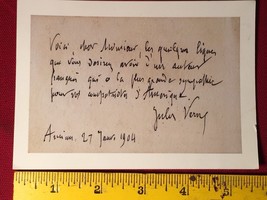 Voici, cher Monsieur, les quelques lignes
que vous désirez avoir d'un auteur
français qui a la plus grande sympathie
pour ses compatriotes d'Amérique.
Jules Verne
Amiens, 27 Janv. 1904
1 2 3 4 5